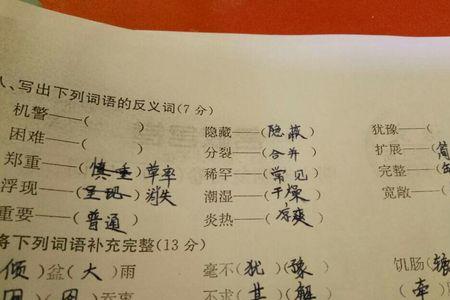 、写出下列词语的反义词(7 分)
机警——( ) 隐藏——(隐蔽) 犹豫——(
困难——( ) 分裂——(合并) 扩展——(
郑重——(慎重)草率 稀罕——(常见) 完整——(
浮现——(呈现)消失 潮湿——(干燥) 宽敞——(
重要——(普通) 炎热——(凉爽)
将下列词语补充完整(13 分)
倾)盆(大)雨 毫不(犹)(豫) 饥肠(辘
)吞枣 不求(其)( (牵